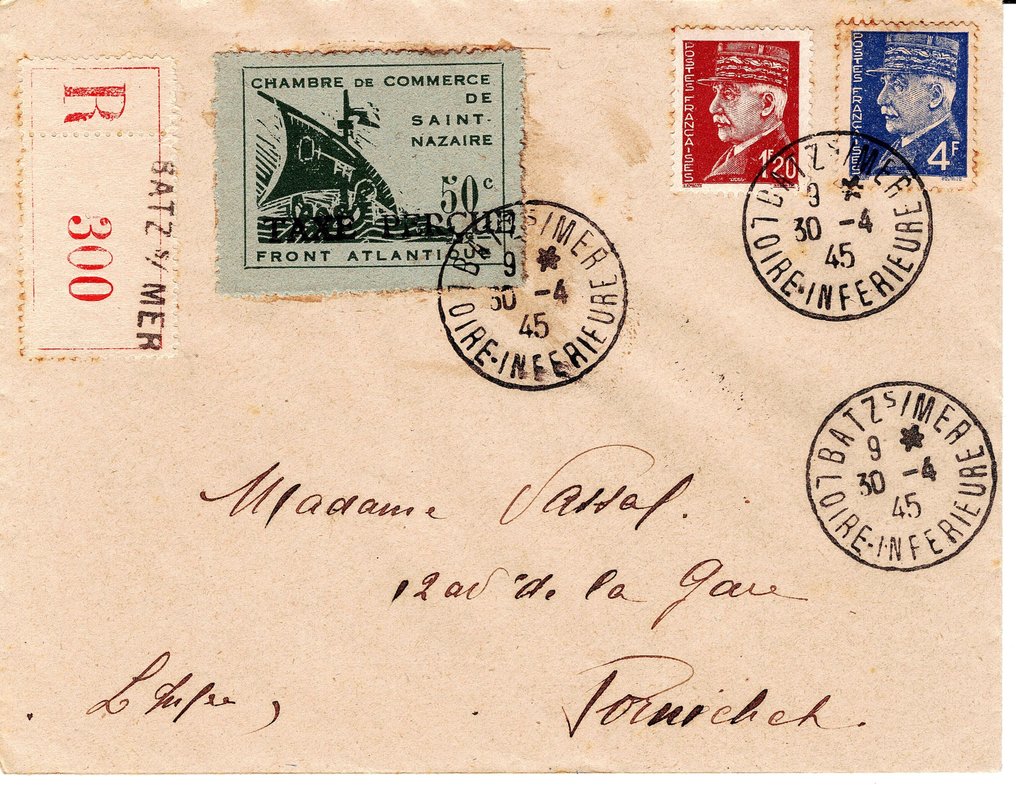 R
300
BATZ S/ MER
CHAMBRE DE COMMERCE
DE
SAINT-
NAZAIRE
50c
TAXE PERÇUE
FRONT ATLANTI
POSTES FRANÇAISES
1F20
POSTES FRANÇAISES
4F
BATZ S/MER
9
30 -4
45
LOIRE-INFERIEURE
BATZ S/MER
9
30 -4
45
LOIRE-INFERIEURE
BATZ S/MER
9
30 -4
45
LOIRE-INFERIEURE
Madame Vassal.
12 av de la Gare
Pornichet.